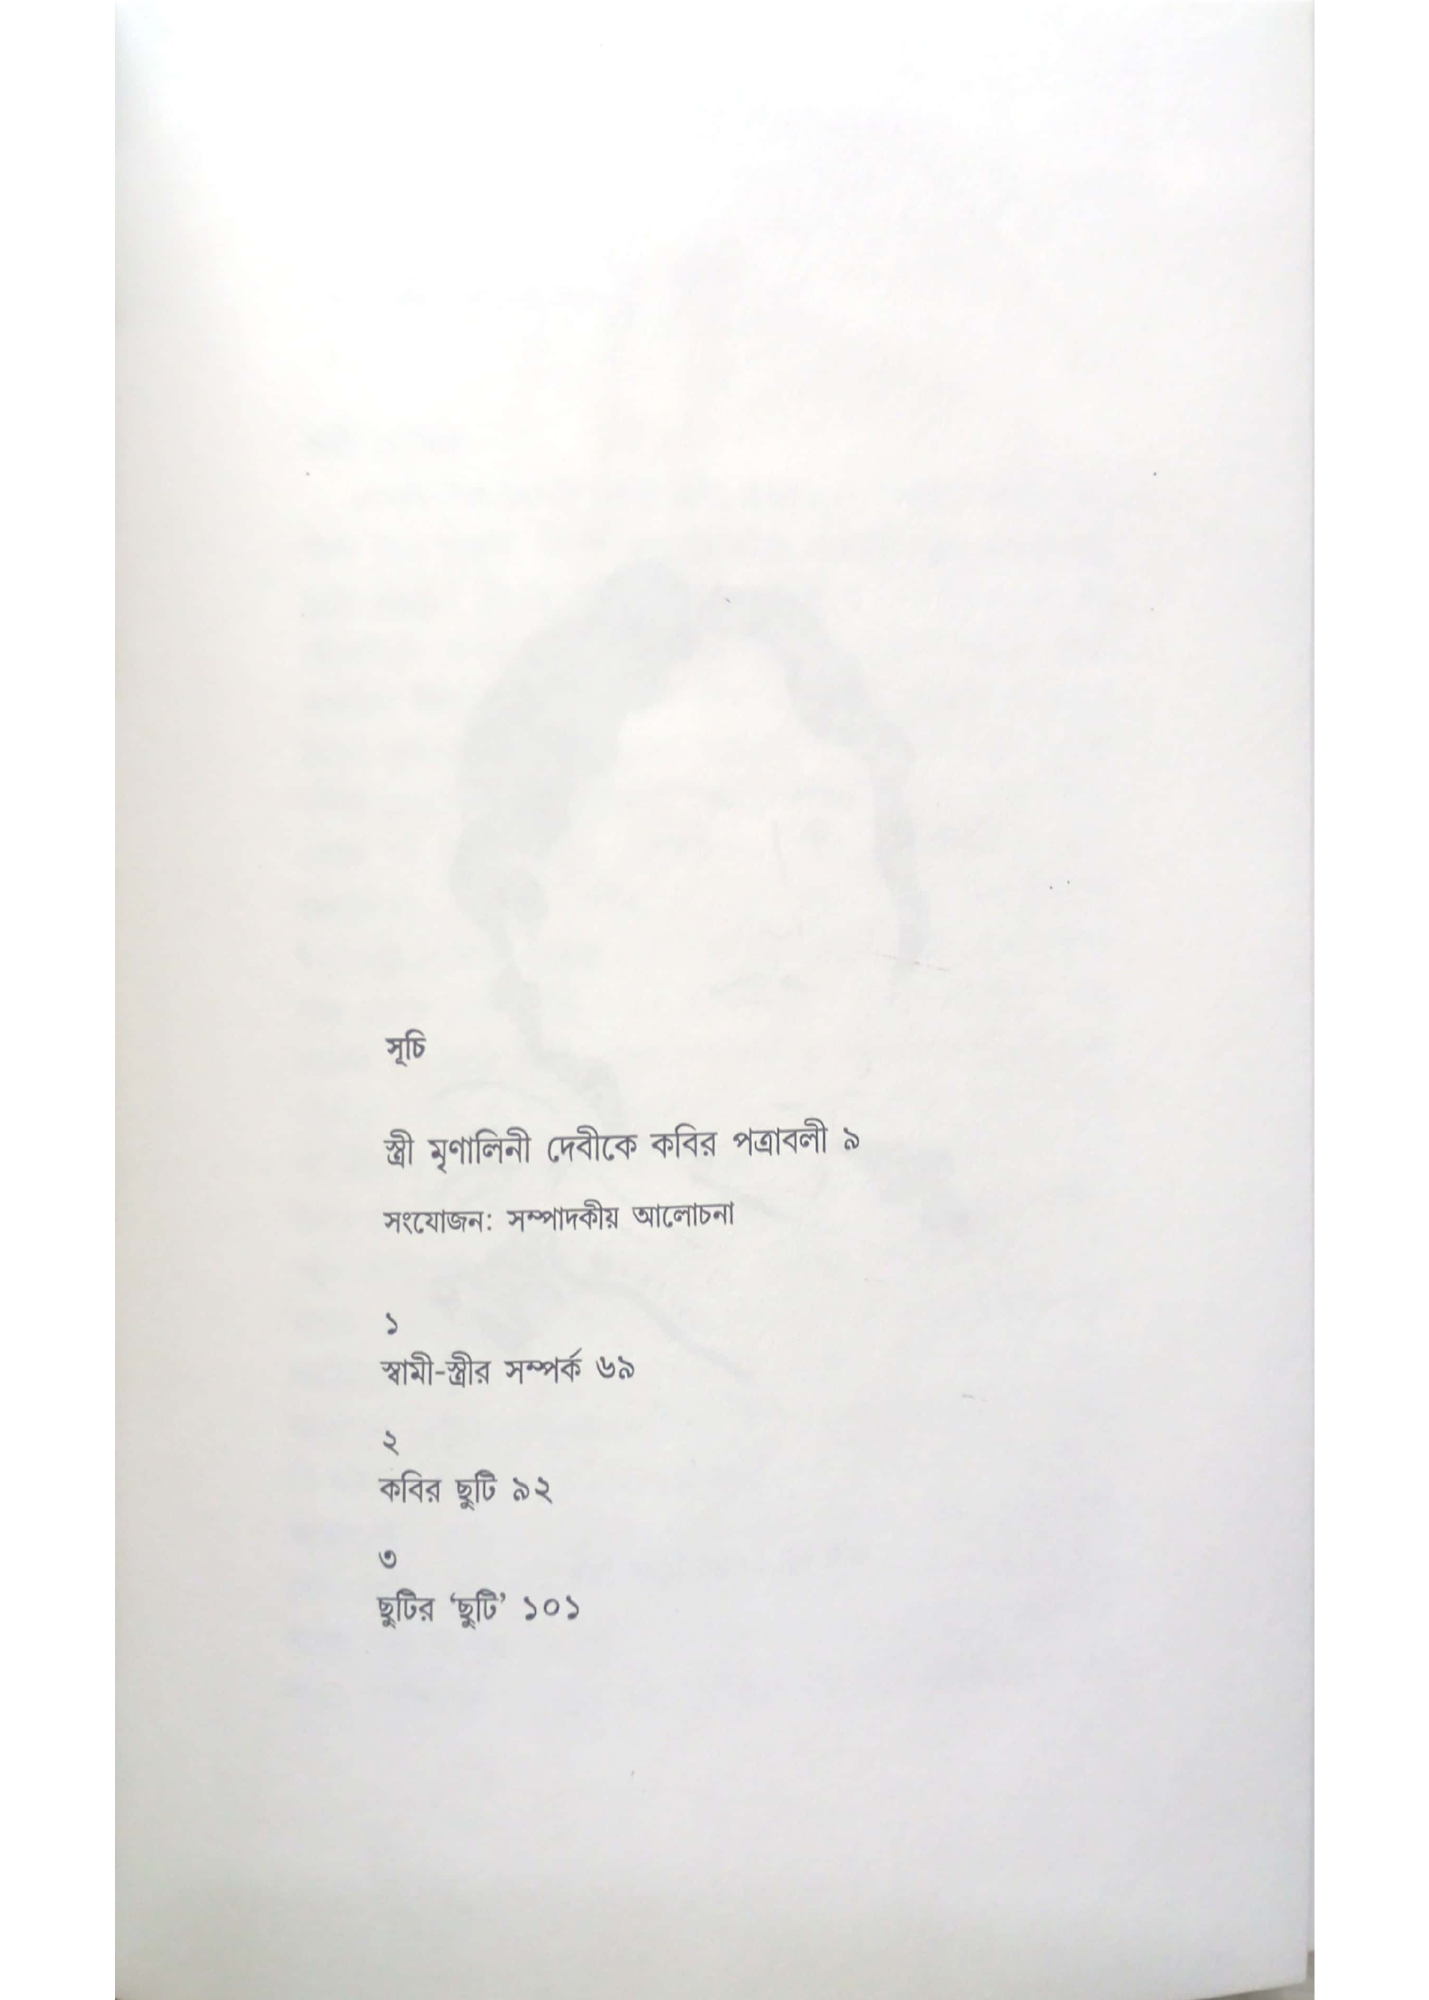 সূচি
স্ত্রী মৃণালিনী দেবীকে কবির পত্রাবলী ৯
সংযোজন: সম্পাদকীয় আলোচনা
১
স্বামী-স্ত্রীর সম্পর্ক ৬৯
২
কবির ছুটি ৯২
৩
ছুটির ‘ছুটি’ ১০১